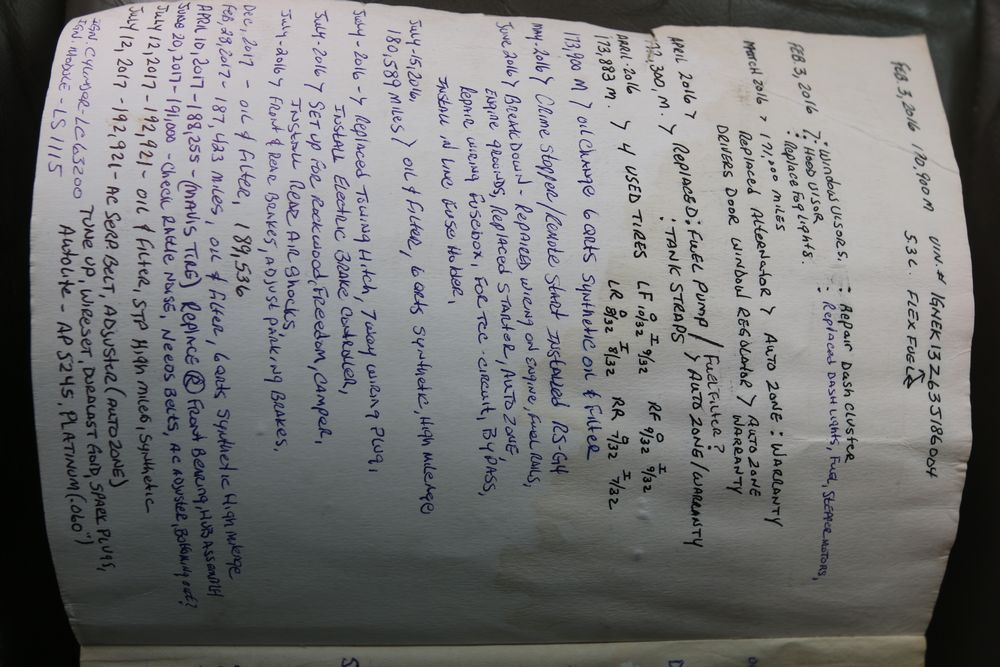 FEB 3, 2016 170,900 M VIN.# 1GNEK13Z63J186004
5.3 L. FLEX FUEL
FEB. 3, 2016 7. WINDOW VISORS, : Repair Dash Cluster
: Hood VISOR : Replaced DASH Lights, Fuel, STEPPER MOTORS,
: Replace Fog Lights.
MARCH 2016 > 171,000 miles
Replaced Alternator > AUTO ZONE : WARRANTY
DRIVERS DOOR WINDOW REGULATOR > AUTO ZONE WARRANTY
APRIL 2016 > REPLACED: FUEL PUMP / Fuel Filter? > AUTO ZONE/WARRANTY
172,300, M. : TANK STRAPS
APRIL 2016 > 4 USED TIRES LF O 10/32 I 9/32 RF O 9/32 I 9/32
173,883 M. LR O 8/32 I 8/32 RR O 7/32 I 7/32
173,900 M > oil change 6 qrts Synthetic oil & Filter
MAY-2016 > Crime Stopper/Remote Start Installed RS-G4
June 2016 > Break Down - Repaired wiring on Engine, Fuel Rails,
Engine grounds, Replaced Starter, AUTO ZONE,
Repair wiring Fusebox, For TCC-circuit, Bypass,
Install in line Fuse Holder,
July-15, 2016,
180,589 Miles > oil & Filter, 6 qrts Synthetic, High mileage
July-2016 -> Replaced Towing Hitch, 7 way wiring Plug,
Install Electric Brake Controller,
July-2016 > SET up for Rockwood, Freedom, Camper,
Install Rear Air Shocks,
July-2016 > Front & Rear Brakes, Adjust parking Brakes,
Dec, 2017 - oil & Filter, 189,536
Feb, 23, 2017 - 187,423 miles, oil & Filter, 6 qrts Synthetic High mileage
April 10, 2017 - 188,255 - (MAVIS TIRE) Replace (R) Front Bearing, HUB Assembly
June 20, 2017 - 191,000 - Check Rattle Noise, Needs Belts, AC Adjuster, Bottoming out?
July 12, 2017 - 192,921 - OIL & Filter, STP High miles, Synthetic
July 12, 2017 - 192,921 - AC SERP BELT, ADJUSTER (AUTO ZONE)
TUNE UP, WIRESET, DURALAST Gold, SPARK PLUGS,
IGN. CYLINDER - LC63200 Autolite - AP5245, PLATINUM (.060")
IGN. MODULE - LS1115